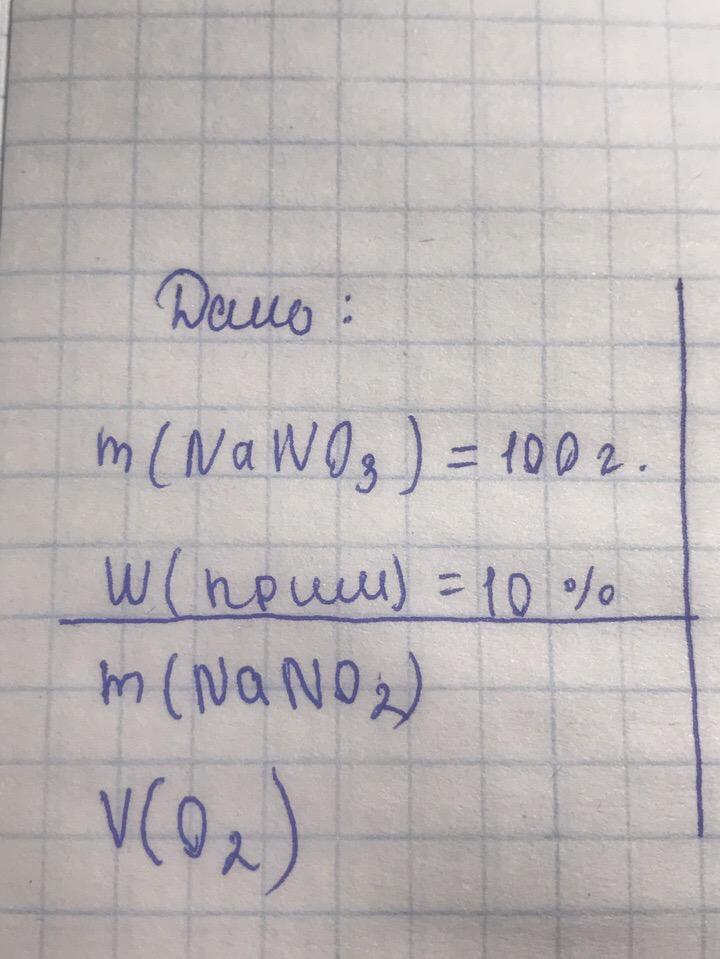 Дано:
m(NaNO₃) = 100 г.
W(прим) = 10 %
m(NaNO₂)
V(O₂)